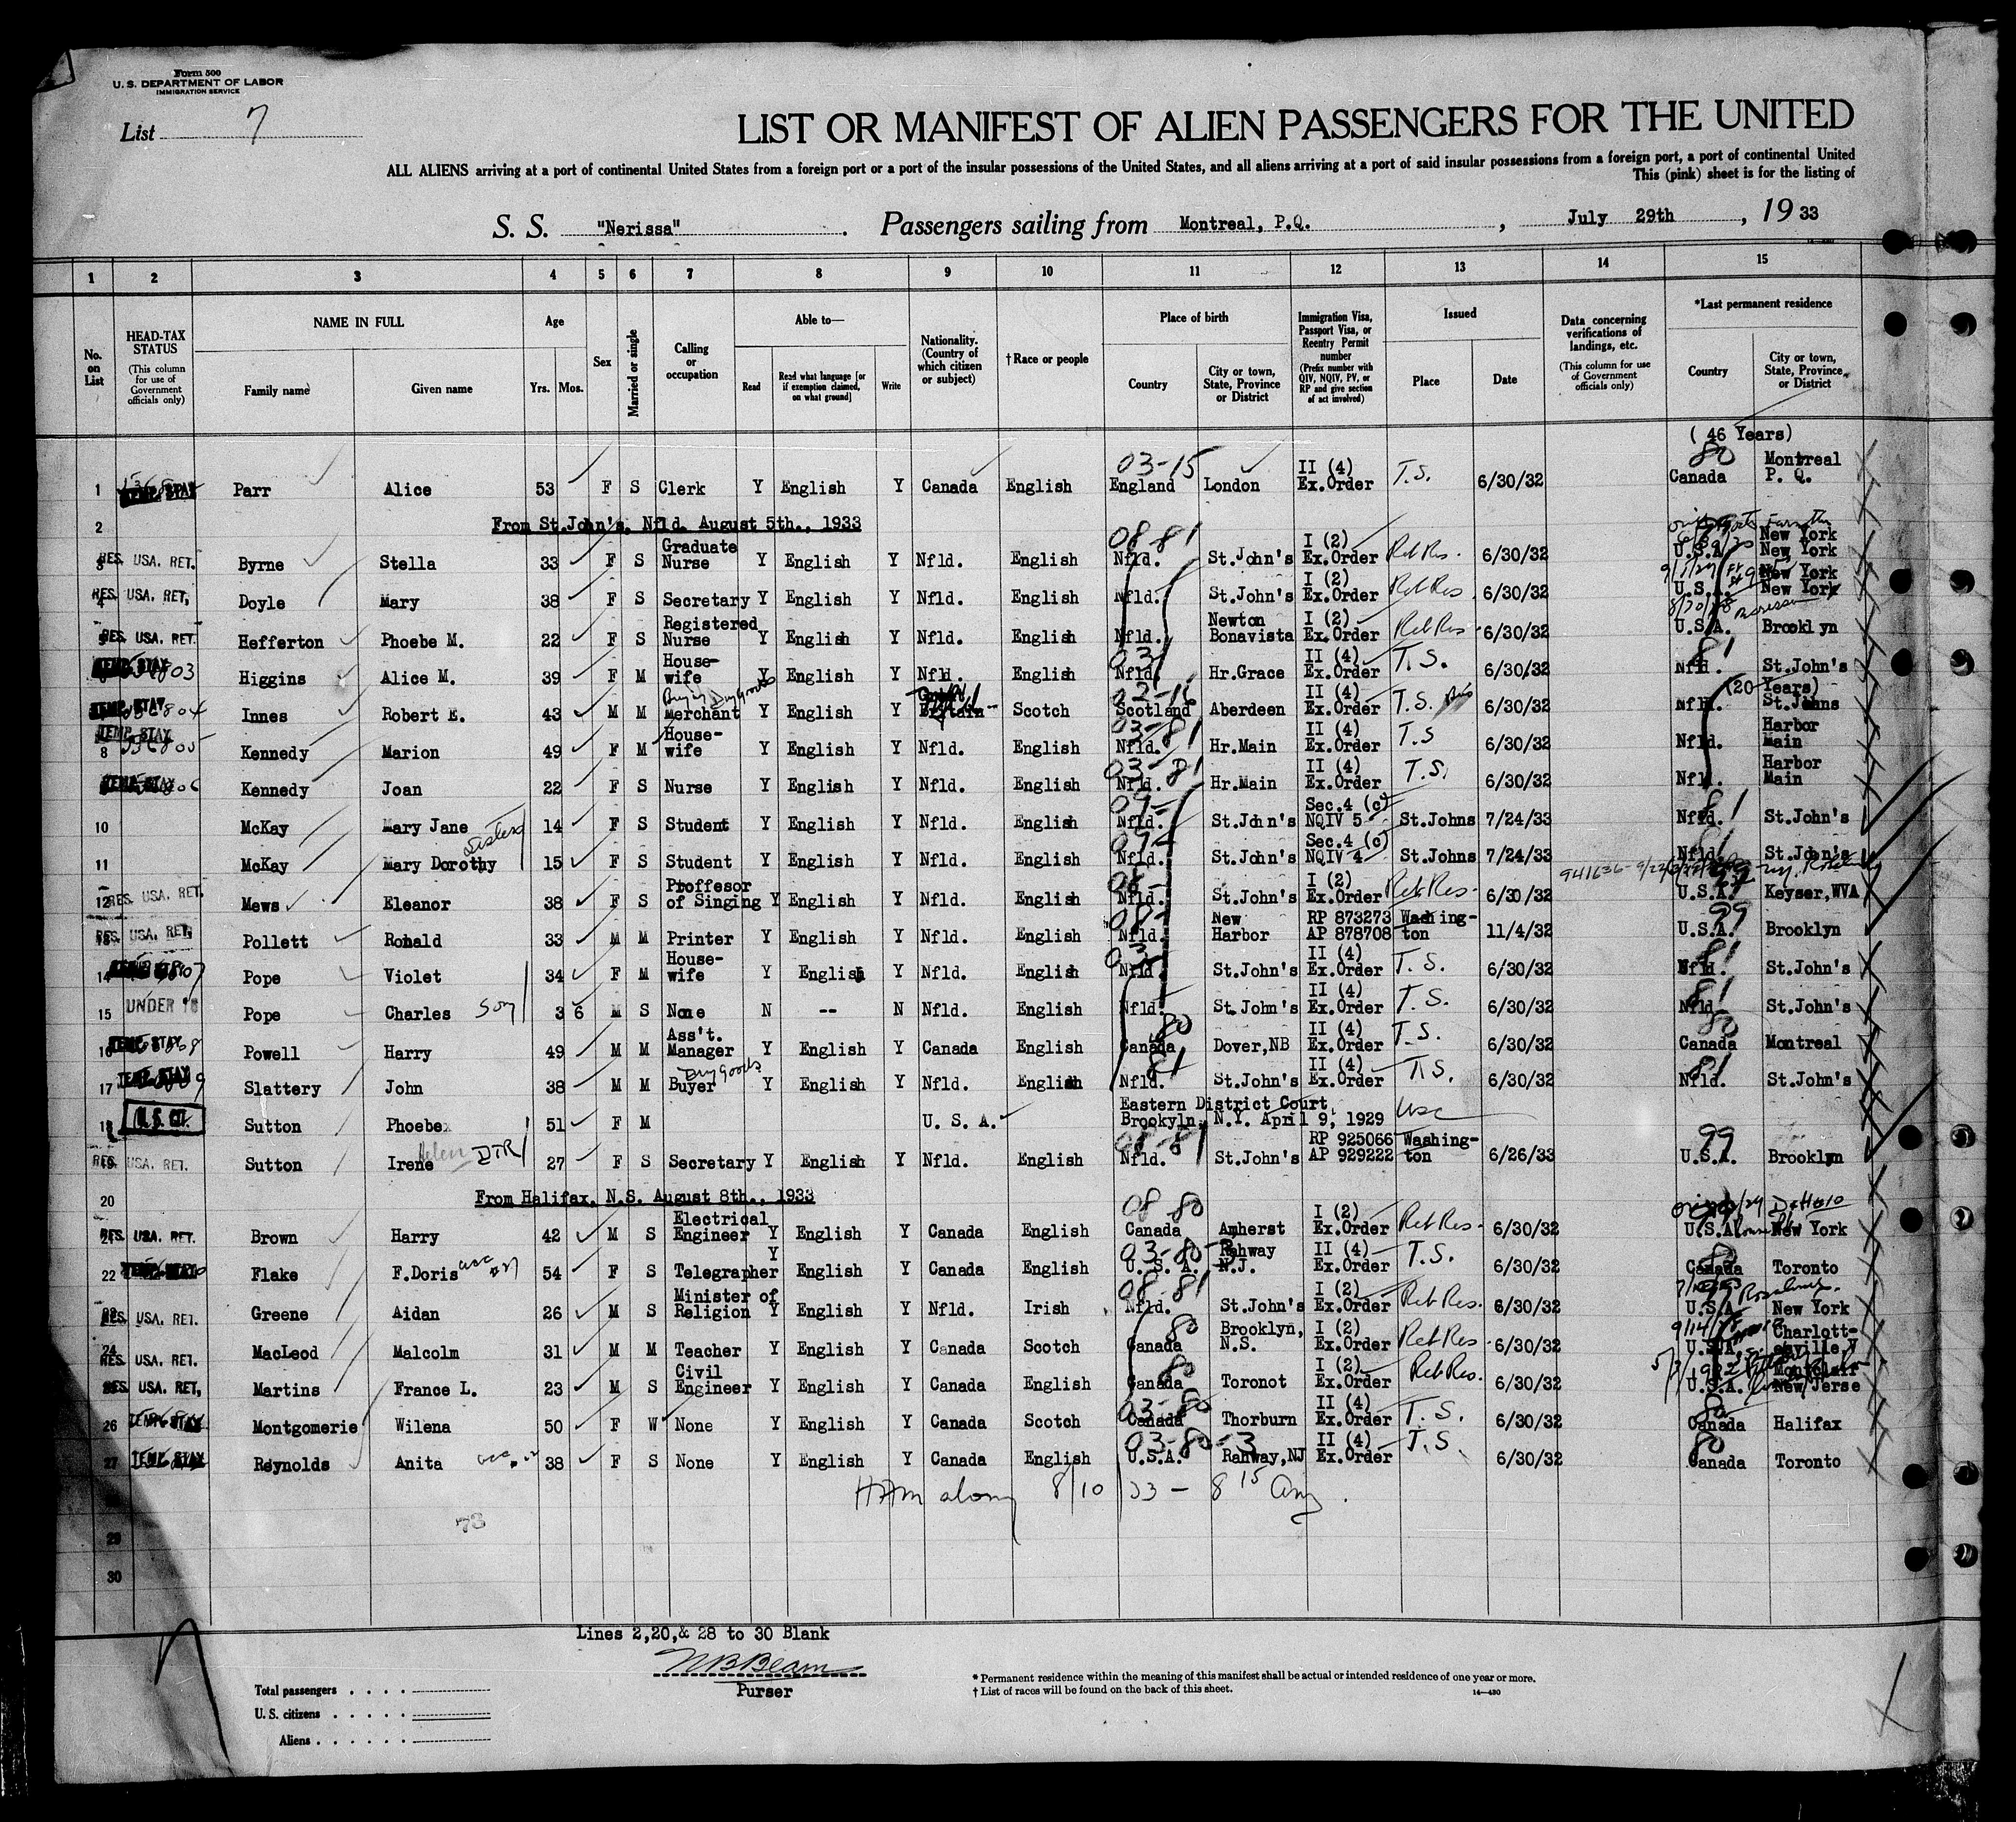 Form 500
U. S. DEPARTMENT OF LABOR
IMMIGRATION SERVICE
List 7
LIST OR MANIFEST OF ALIEN PASSENGERS FOR THE UNITED
ALL ALIENS arriving at a port of continental United States from a foreign port or a port of the insular possessions of the United States, and all aliens arriving at a port of said insular possessions from a foreign port, a port of continental United
This (pink) sheet is for the listing of
S. S. "Nerissa" . Passengers sailing from Montreal, P.Q. , July 29th , 19 33
1 2 3 4 5 6 7 8 9 10 11 12 13 14 15
No. on List
HEAD-TAX STATUS (This column for use of Government officials only)
NAME IN FULL
Family name Given name
Age
Yrs. Mos.
Sex
Married or single
Calling or occupation
Able to—
Read Read what language [or if exemption claimed, on what ground] Write
Nationality. (Country of which citizen or subject)
†Race or people
Place of birth
Country City or town, State, Province or District
Immigration Visa, Passport Visa, or Reentry Permit number (Prefix number with QIV, NQIV, PV, or RP and give section of act involved)
Issued
Place Date
Data concerning verifications of landings, etc. (This column for use of Government officials only)
*Last permanent residence
Country City or town, State, Province, or District
(46 Years)
1 TEMP. STAY Parr Alice 53 F S Clerk Y English Y Canada English 03-15 England London II (4) Ex.Order T.S. 6/30/32 80 Canada Montreal P. Q.
2 From St.John's, Nfld. August 5th., 1933
3 RES. USA. RET. Byrne Stella 33 F S Graduate Nurse Y English Y Nfld. English 08-81 Nfld. St.John's I (2) Ex.Order Ret Res. 6/30/32 U.S.A. New York New York
4 RES. USA. RET. Doyle Mary 38 F S Secretary Y English Y Nfld. English Nfld. St.John's I (2) Ex.Order Ret Res. 6/30/32 U.S.A. New York New York
5 RES. USA. RET. Hefferton Phoebe M. 22 F S Registered Nurse Y English Y Nfld. English Nfld. Newton Bonavista I (2) Ex.Order Ret Res 6/30/32 U.S.A. Brooklyn
TEMP. STAY Higgins Alice M. 39 F M House-wife Y English Y Nfld. English 03 Nfld. Hr.Grace II (4) Ex.Order T.S. 6/30/32 81 Nfld. St.John's
TEMP. STAY Innes Robert E. 43 M M Buying Dry Goods Merchant Y English Y Nfld Scotch 02-16 Scotland Aberdeen II (4) Ex.Order T.S. 6/30/32 Nfld. (20 Years) St.Johns
8 TEMP. STAY Kennedy Marion 49 F M House-wife Y English Y Nfld. English 03-81 Nfld. Hr.Main II (4) Ex.Order T.S 6/30/32 Nfld. Harbor Main
TEMP. STAY Kennedy Joan 22 F S Nurse Y English Y Nfld. English 03-81 Nfld. Hr.Main II (4) Ex.Order T.S. 6/30/32 Nfld. Harbor Main
10 McKay Mary Jane 14 F S Student Y English Y Nfld. English 09- Nfld. St.John's Sec.4 (c) NQIV 5 St.Johns 7/24/33 81 Nfld. St.John's
Sisters
11 McKay Mary Dorothy 15 F S Student Y English Y Nfld. English 09- Nfld. St.John's Sec.4 (c) NQIV 4 St.Johns 7/24/33 81 Nfld. St.John's
12 RES. USA. RET. Mews Eleanor 38 F S Proffesor of Singing Y English Y Nfld. English 08- Nfld. St.John's I (2) Ex.Order Ret Res. 6/30/32 U.S.A. Keyser,WVA
13 RES. USA. RET. Pollett Ronald 33 M M Printer Y English Y Nfld. English 08- Nfld. New Harbor RP 873273 AP 878708 Washing-ton 11/4/32 99 U.S.A. Brooklyn
14 Pope Violet 34 F M House-wife Y English Y Nfld. English 03 Nfld. St.John's II (4) Ex.Order T.S. 6/30/32 81 Nfld. St.John's
15 UNDER 16 Pope Charles Son 3 6 M S None N -- N Nfld. English Nfld. St.John's II (4) Ex.Order T.S. 6/30/32 81 Nfld. St.John's
16 TEMP. STAY Powell Harry 49 M M Ass't. Manager Y English Y Canada English 80 Canada Dover,NB II (4) Ex.Order T.S. 6/30/32 80 Canada Montreal
17 TEMP. STAY Slattery John 38 M M Dry Goods Buyer Y English Y Nfld. English 81 Nfld. St.John's II (4) Ex.Order T.S. 6/30/32 81 Nfld. St.John's
18 U. S. CIT. Sutton Phoebe 51 F M U. S. A. Eastern District Court, Brookyln, N.Y. April 9, 1929 USC
19 RES. USA. RET. Sutton Irene Helen DTR 27 F S Secretary Y English Y Nfld. English 08-81 Nfld. St.John's RP 925066 AP 929222 Washing-ton 6/26/33 99 U.S.A. Brooklyn
20 From Halifax, N.S. August 8th., 1933
21 RES. USA. RET. Brown Harry 42 M S Electrical Engineer Y English Y Canada English 08-80 Canada Amherst I (2) Ex.Order Ret Res- 6/30/32 U.S.A. New York
22 TEMP. STAY Flake F.Doris acc #27 54 F S Telegrapher Y English Y Canada English 03-80-3 U. S. A. Rahway N.J. II (4) Ex.Order T.S. 6/30/32 80 Canada Toronto
23 RES. USA. RET. Greene Aidan 26 M S Minister of Religion Y English Y Nfld. Irish 08-81 Nfld. St.John's I (2) Ex.Order Ret Res. 6/30/32 99 U.S.A. Rosalind New York
24 RES. USA. RET. MacLeod Malcolm 31 M M Teacher Y English Y Canada Scotch 80 Canada Brooklyn, N.S. I (2) Ex.Order Ret Res. 6/30/32 U.S.A. Charlott-esville,V
25 RES. USA. RET. Martins France L. 23 M S Civil Engineer Y English Y Canada English 80 Canada Toronot I (2) Ex.Order Ret Res. 6/30/32 U.S.A. Montclair New Jerse
26 TEMP. STAY Montgomerie Wilena 50 F W None Y English Y Canada Scotch 03-80 Canada Thorburn II (4) Ex.Order T.S. 6/30/32 80 Canada Halifax
27 TEMP. STAY Reynolds Anita 38 F S None Y English Y Canada English 03-80-3 U.S.A. Rahway,NJ II (4) Ex.Order T.S. 6/30/32 80 Canada Toronto
8/10/33 - 8 15
73
29
30
Lines 2,20,& 28 to 30 Blank
Purser
Total passengers
U. S. citizens
Aliens
* Permanent residence within the meaning of this manifest shall be actual or intended residence of one year or more.
† List of races will be found on the back of this sheet.
14—430